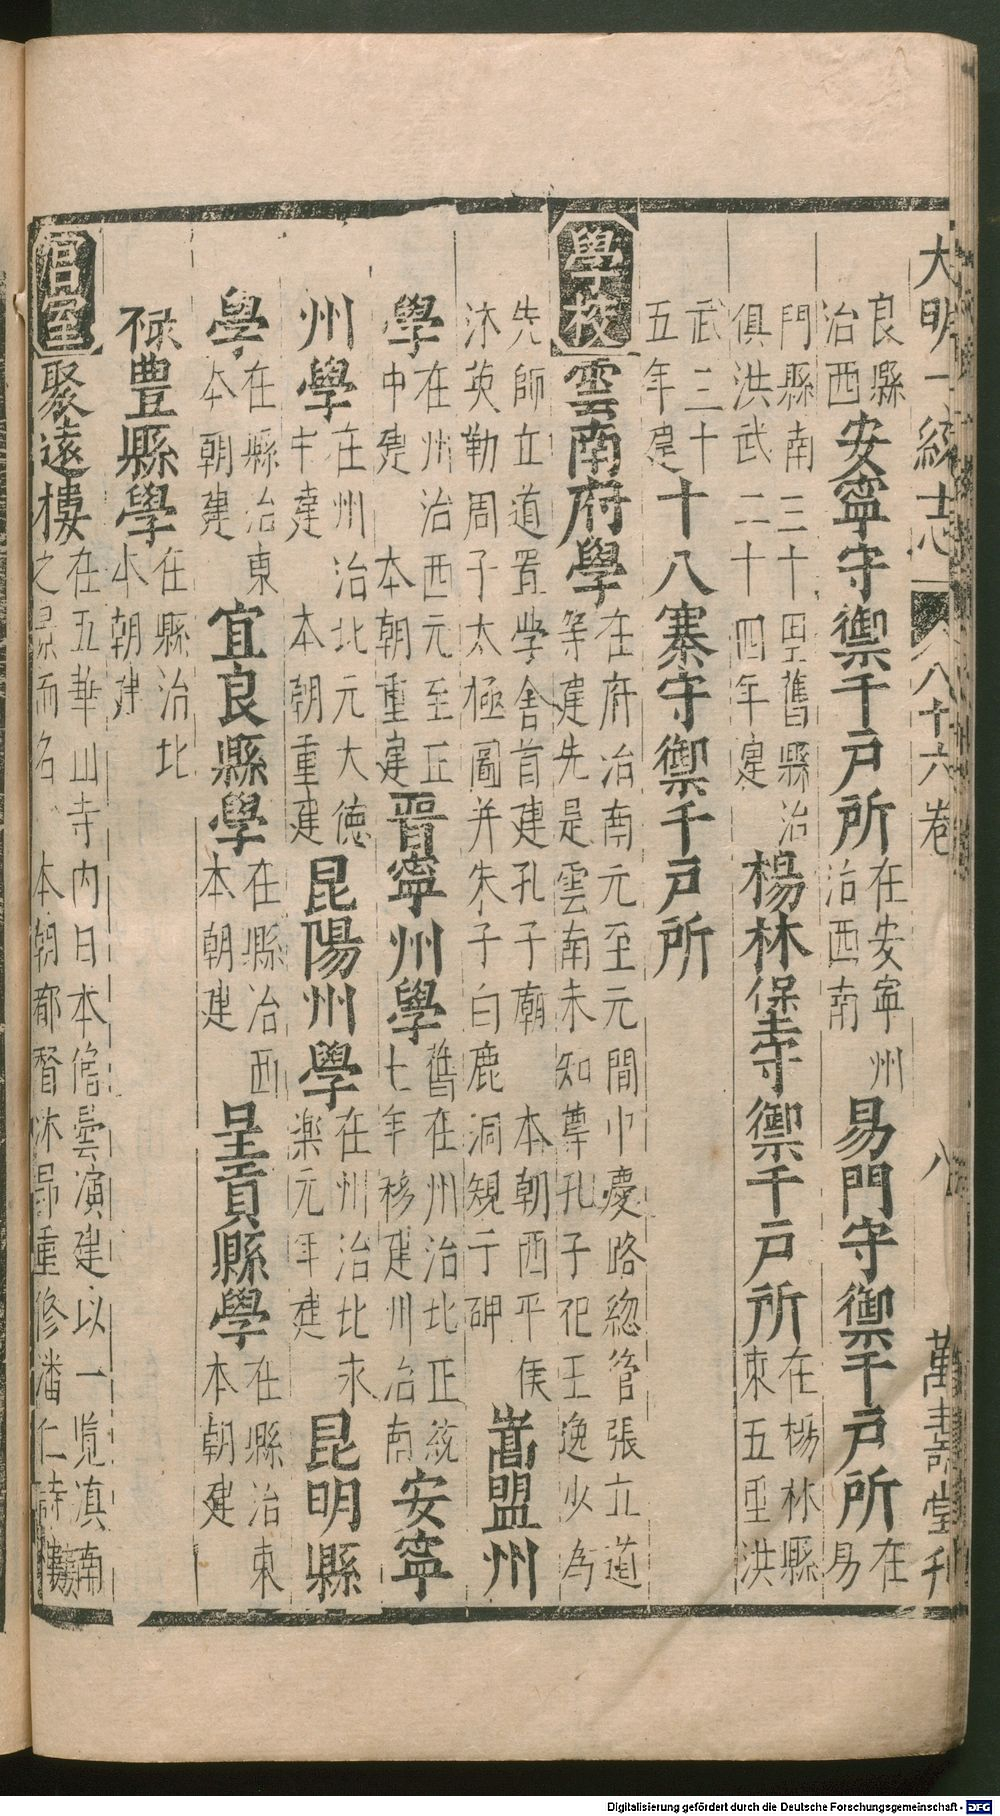 大明一統志 八十六卷 八 萬壽堂刊
良縣治西安寧守禦千戶所在安寧州治西南易門守禦千戶所在易
門縣南三十里舊縣治俱洪武二十四年建楊林堡守禦千戶所在楊林縣東五里洪
武三十五年建十八寨守禦千戶所
學校雲南府學在府治南元至元間中慶路總管張立道等建先是雲南未知尊孔子祀王逸少為
先師立道置學舍首建孔子廟本朝西平侯沐英勒周子太極圖并朱子白鹿洞規于碑嵩盟州
學在州治西元至正中建本朝重建晉寧州學舊在州治北正統七年移建州治南安寧
州學在州治北元大德中建本朝重建昆陽州學在州治北永樂元年建昆明縣
學在縣治東本朝建宜良縣學在縣治西本朝建呈貢縣學在縣治東本朝建
祿豐縣學在縣治北本朝建
宮室聚遠樓在五華山寺內日本僧曇演建以一覽滇南之景而名本朝都督沐昂重修潘仁詩樓
Digitalisierung gefördert durch die Deutsche Forschungsgemeinschaft - DFG